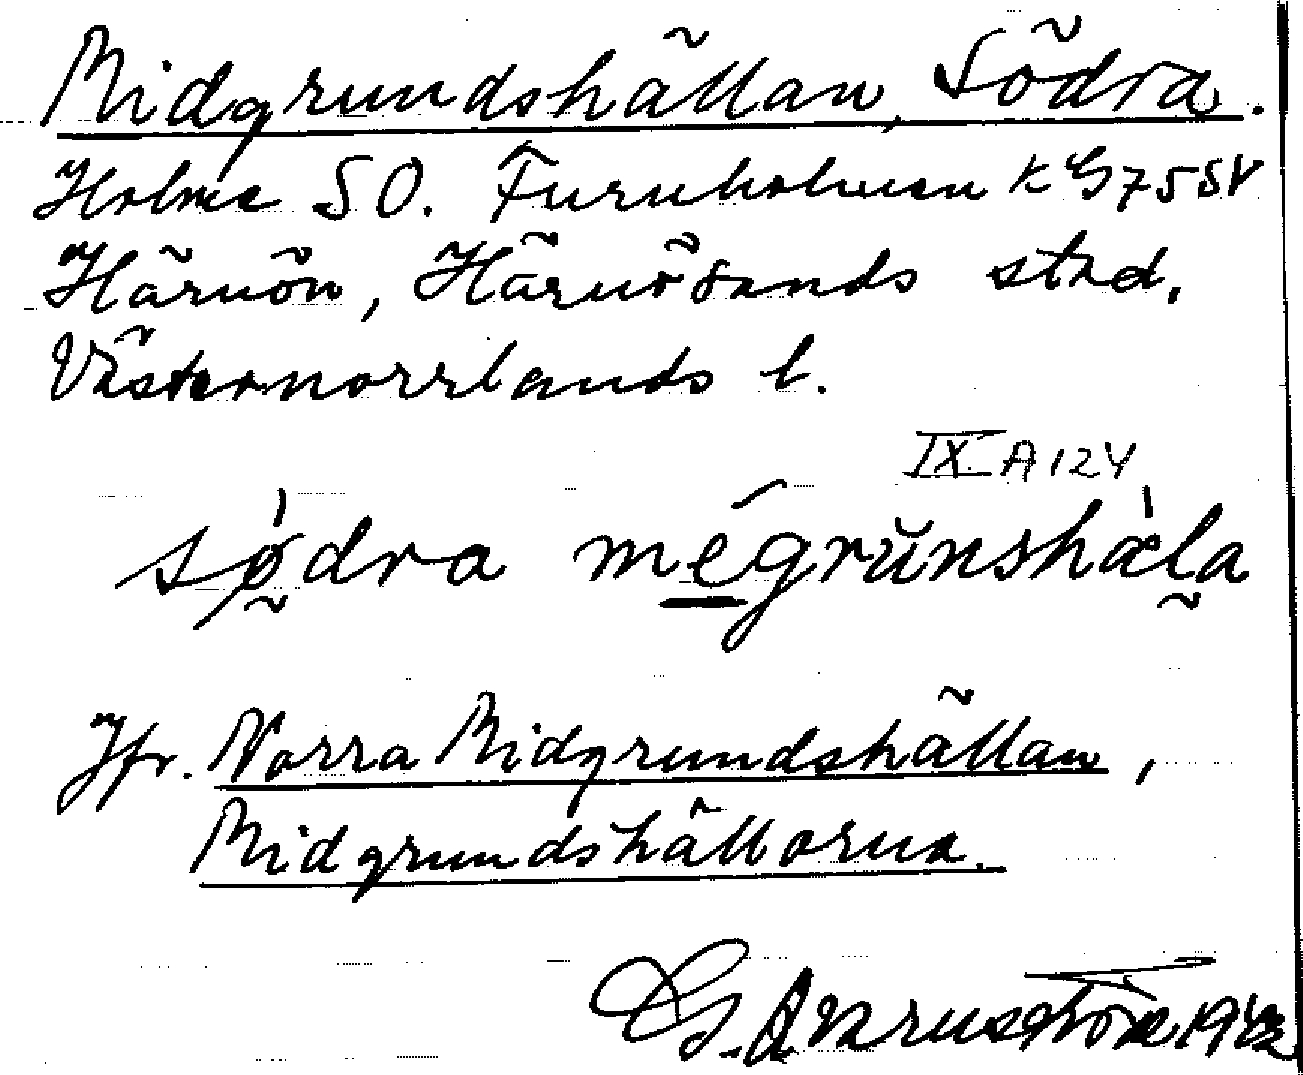 Midgrundshällan, Södra.
Holme SO. Furuholmen KG75SV
Härnön, Härnösands stad.
Västernorrlands l.
IX A124
södra mégrŭnshàla
Jfr. Norra Midgrundshällan,
Midgrundshällorna.